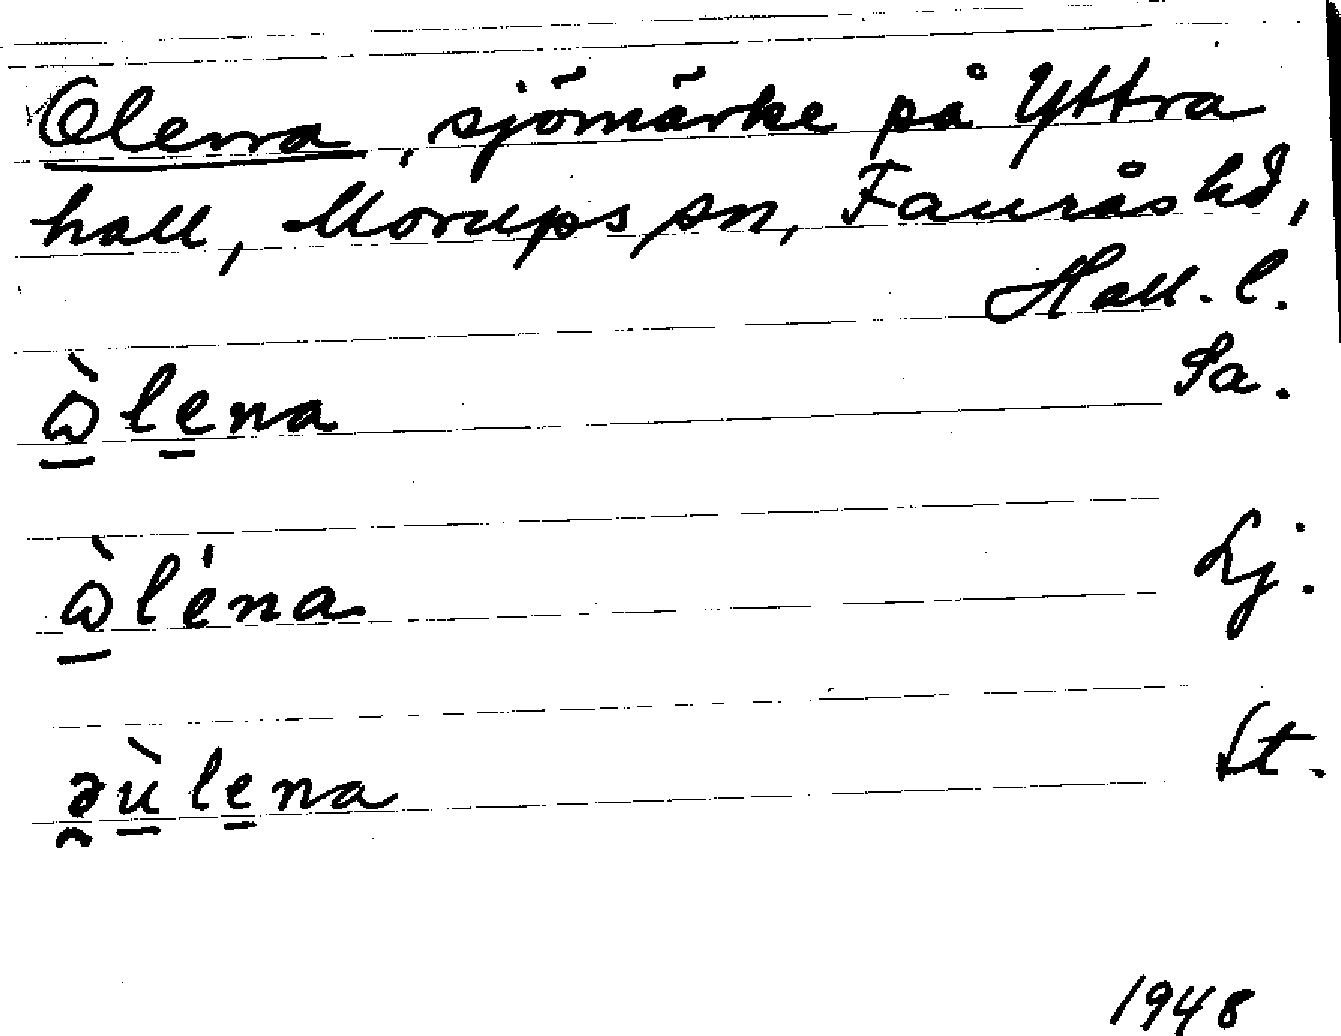 Olenna, sjömärke på Yttra
hall, Morups sn, Faurås hd,
Hall. l.
ꞷ̱̀le̱na Sa.
ꞷ̱̀léna Lj.
ə̯ṳ̀le̱na St.
1948